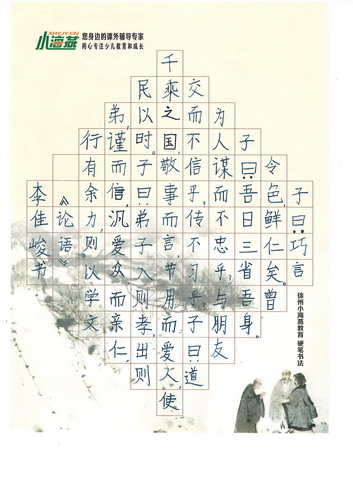 小海燕
XHYJY.CN
您身边的课外辅导专家
用心专注少儿教育和成长
子曰:巧言
令色,鲜仁矣。曾
子曰:吾日三省吾身。
为人谋而不忠乎,与朋友
交而不信乎,传不习乎子曰:道
千乘之国,敬事而言,节用而爱人,使
民以时。子曰:弟子入则孝,出则
弟,谨而信,汎爱众而亲仁,
行有余力,则以学文
《论语》
李佳峻书
徐州小海燕教育 硬笔书法